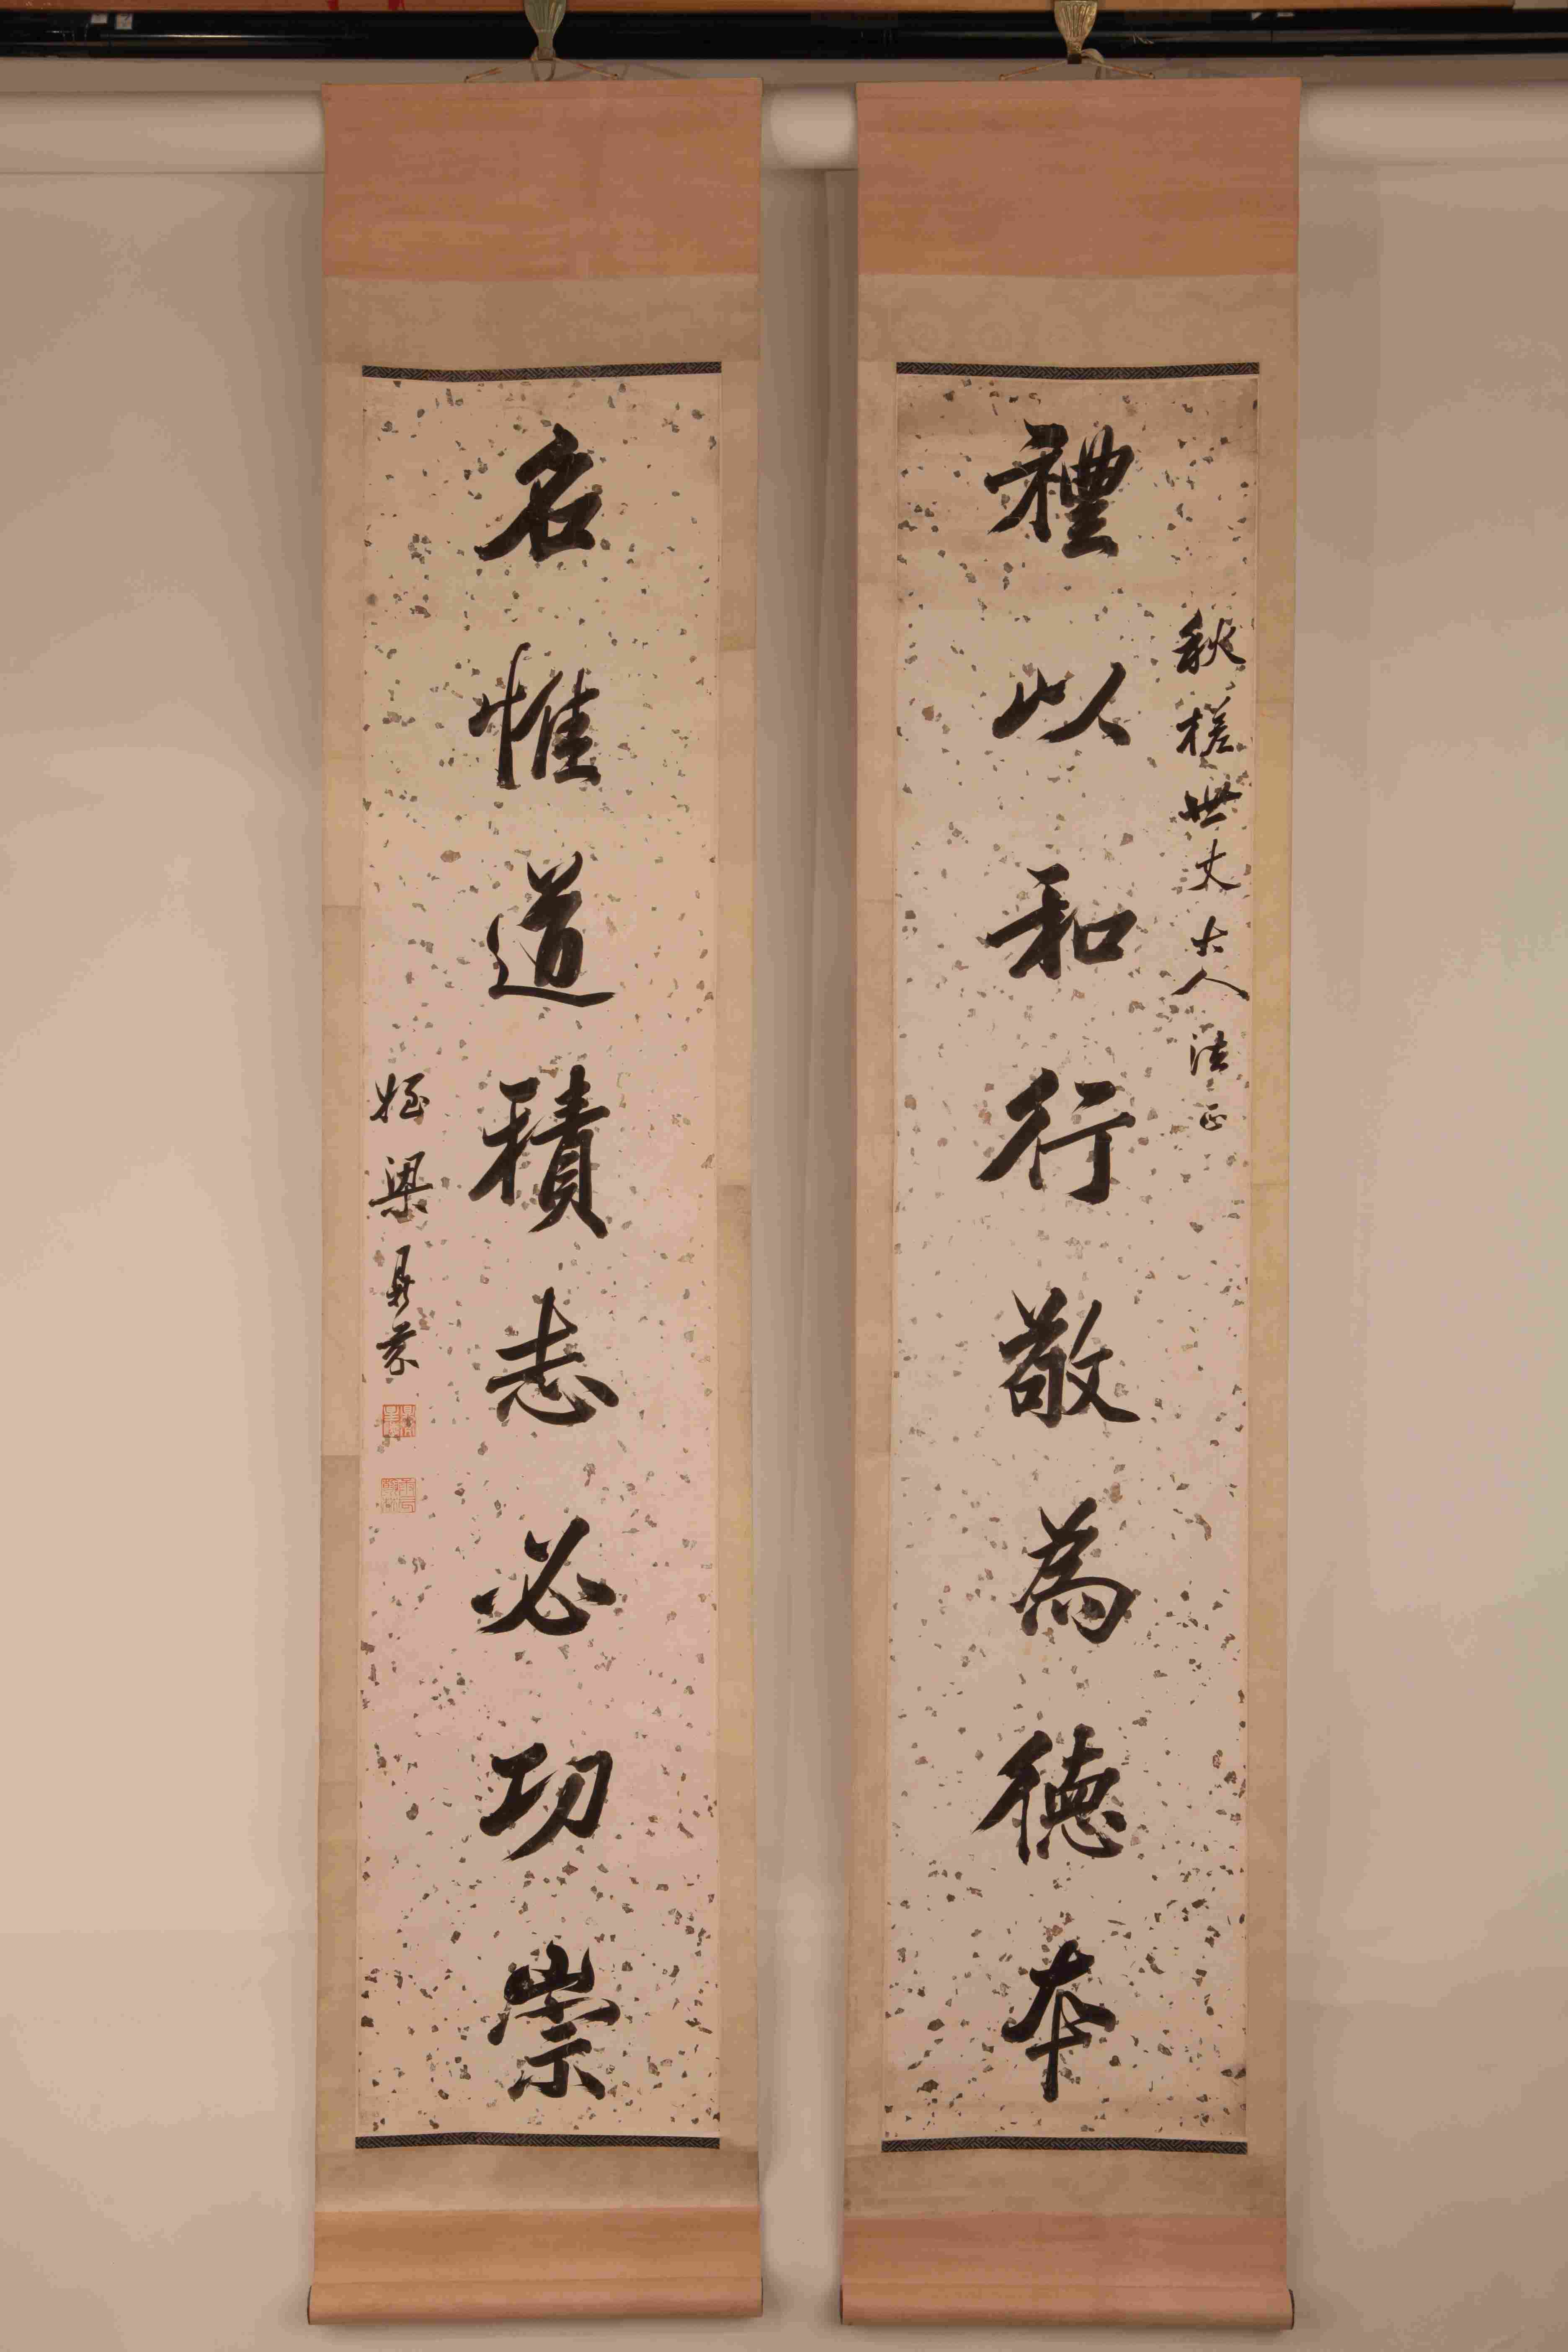 禮以和行敬為德本
秋槎世丈大人法正
名惟道積志必功崇
姪梁鼎芬